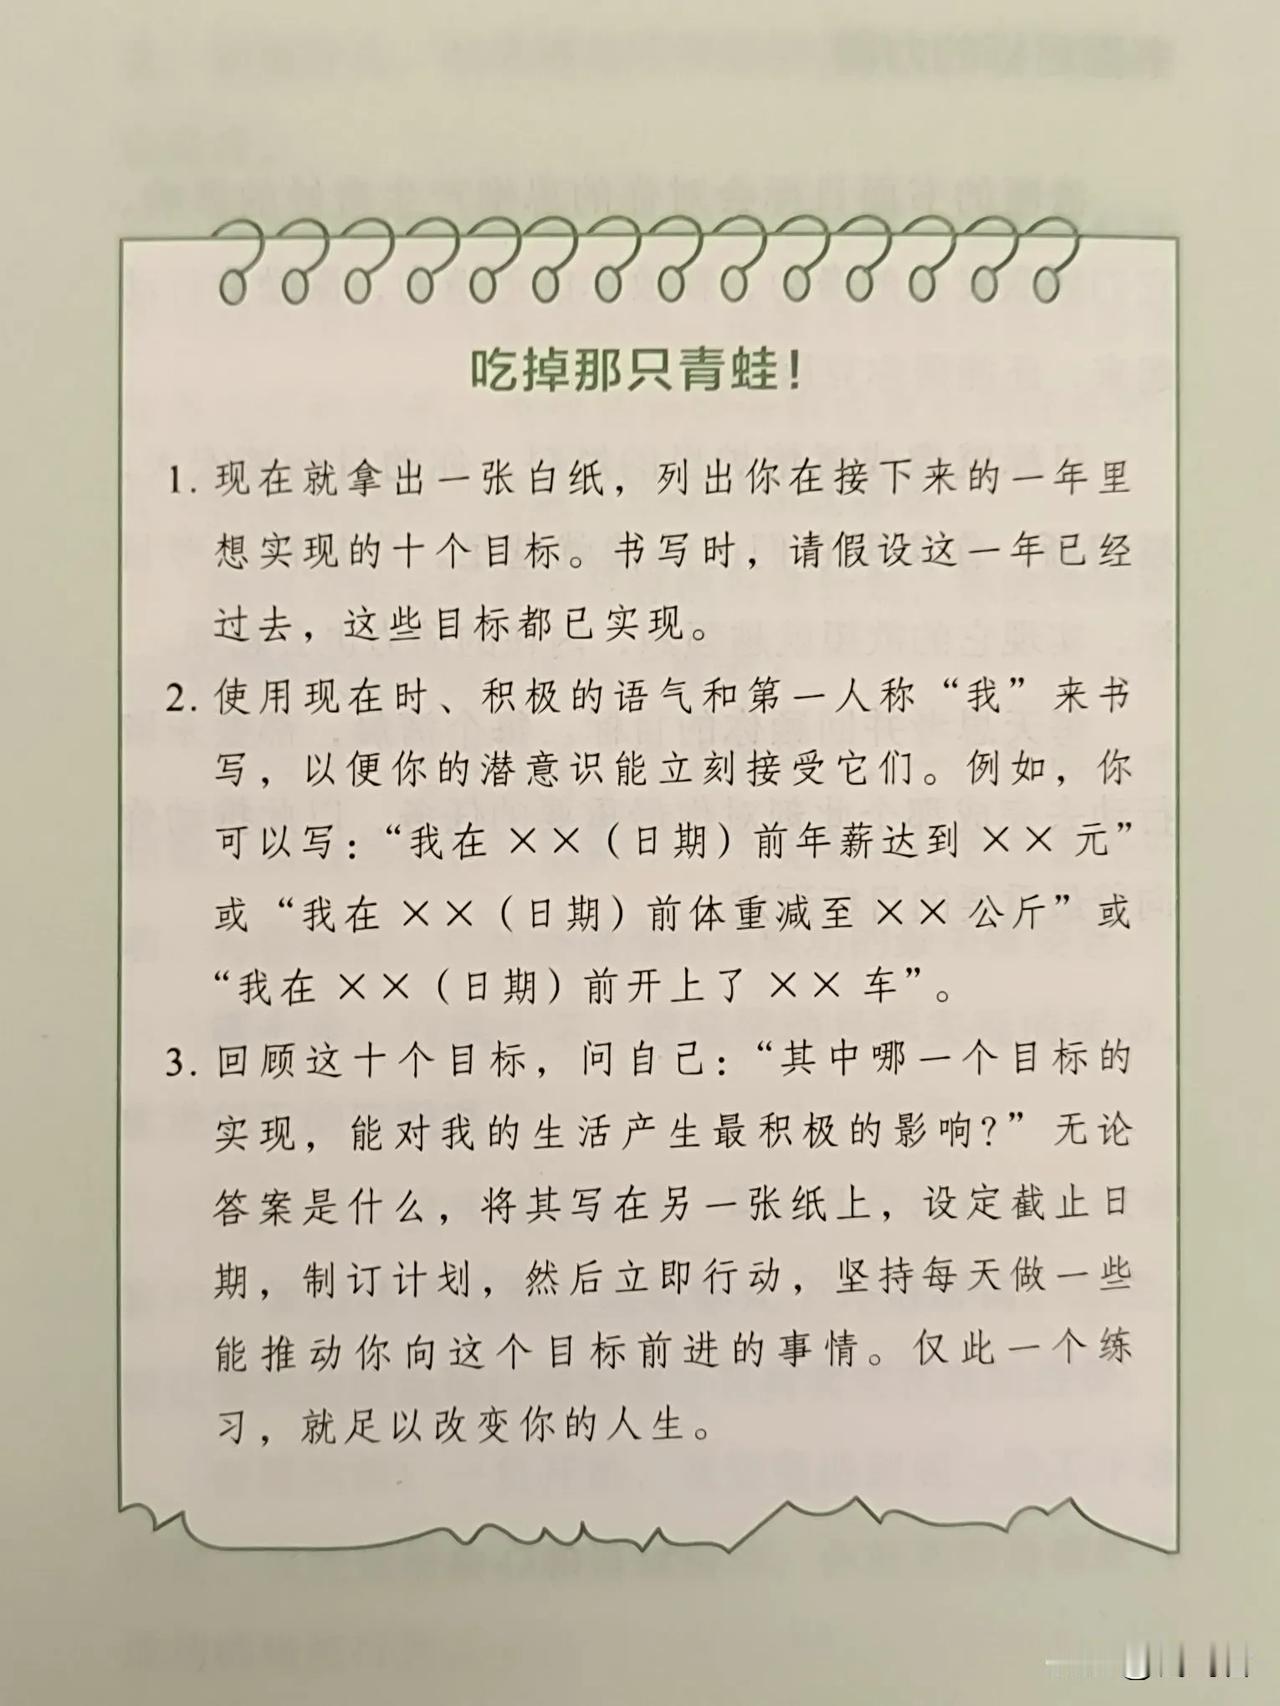 吃掉那只青蛙！
1. 现在就拿出一张白纸，列出你在接下来的一年里
想实现的十个目标。书写时，请假设这一年已经
过去，这些目标都已实现。
2. 使用现在时、积极的语气和第一人称“我”来书
写，以便你的潜意识能立刻接受它们。例如，你
可以写：“我在 ××（日期）前年薪达到 ×× 元”
或“我在 ××（日期）前体重减至 ×× 公斤”或
“我在 ××（日期）前开上了 ×× 车”。
3. 回顾这十个目标，问自己：“其中哪一个目标的
实现，能对我的生活产生最积极的影响？”无论
答案是什么，将其写在另一张纸上，设定截止日
期，制订计划，然后立即行动，坚持每天做一些
能推动你向这个目标前进的事情。仅此一个练
习，就足以改变你的人生。